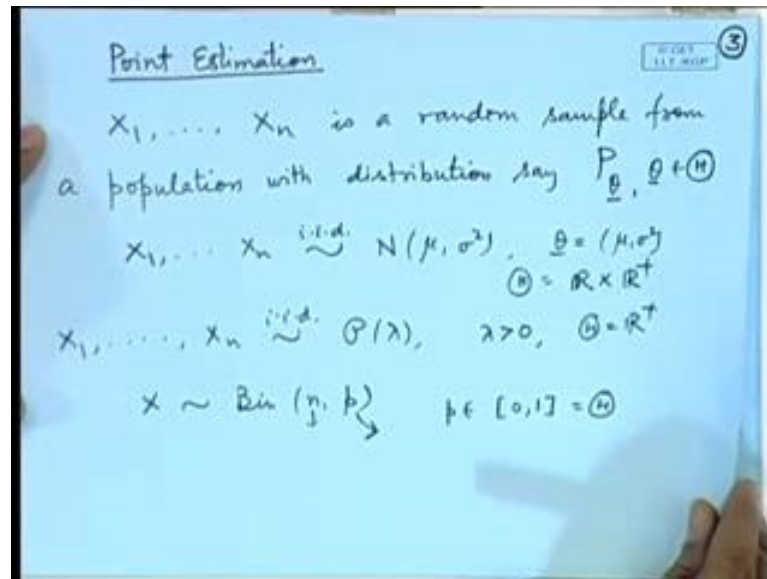 Point Estimation
③
X₁, ...., Xₙ is a random sample from
a population with distribution say P_θ, θ ∈ Ⓗ
X₁, ... Xₙ i.i.d. ~ N(μ, σ²), θ = (μ, σ²)
Ⓗ = ℝ × ℝ⁺
X₁, ....., Xₙ i.i.d. ~ P(λ), λ>0, Ⓗ = ℝ⁺
X ~ Bin (n, p) p ∈ [0,1] = Ⓗ